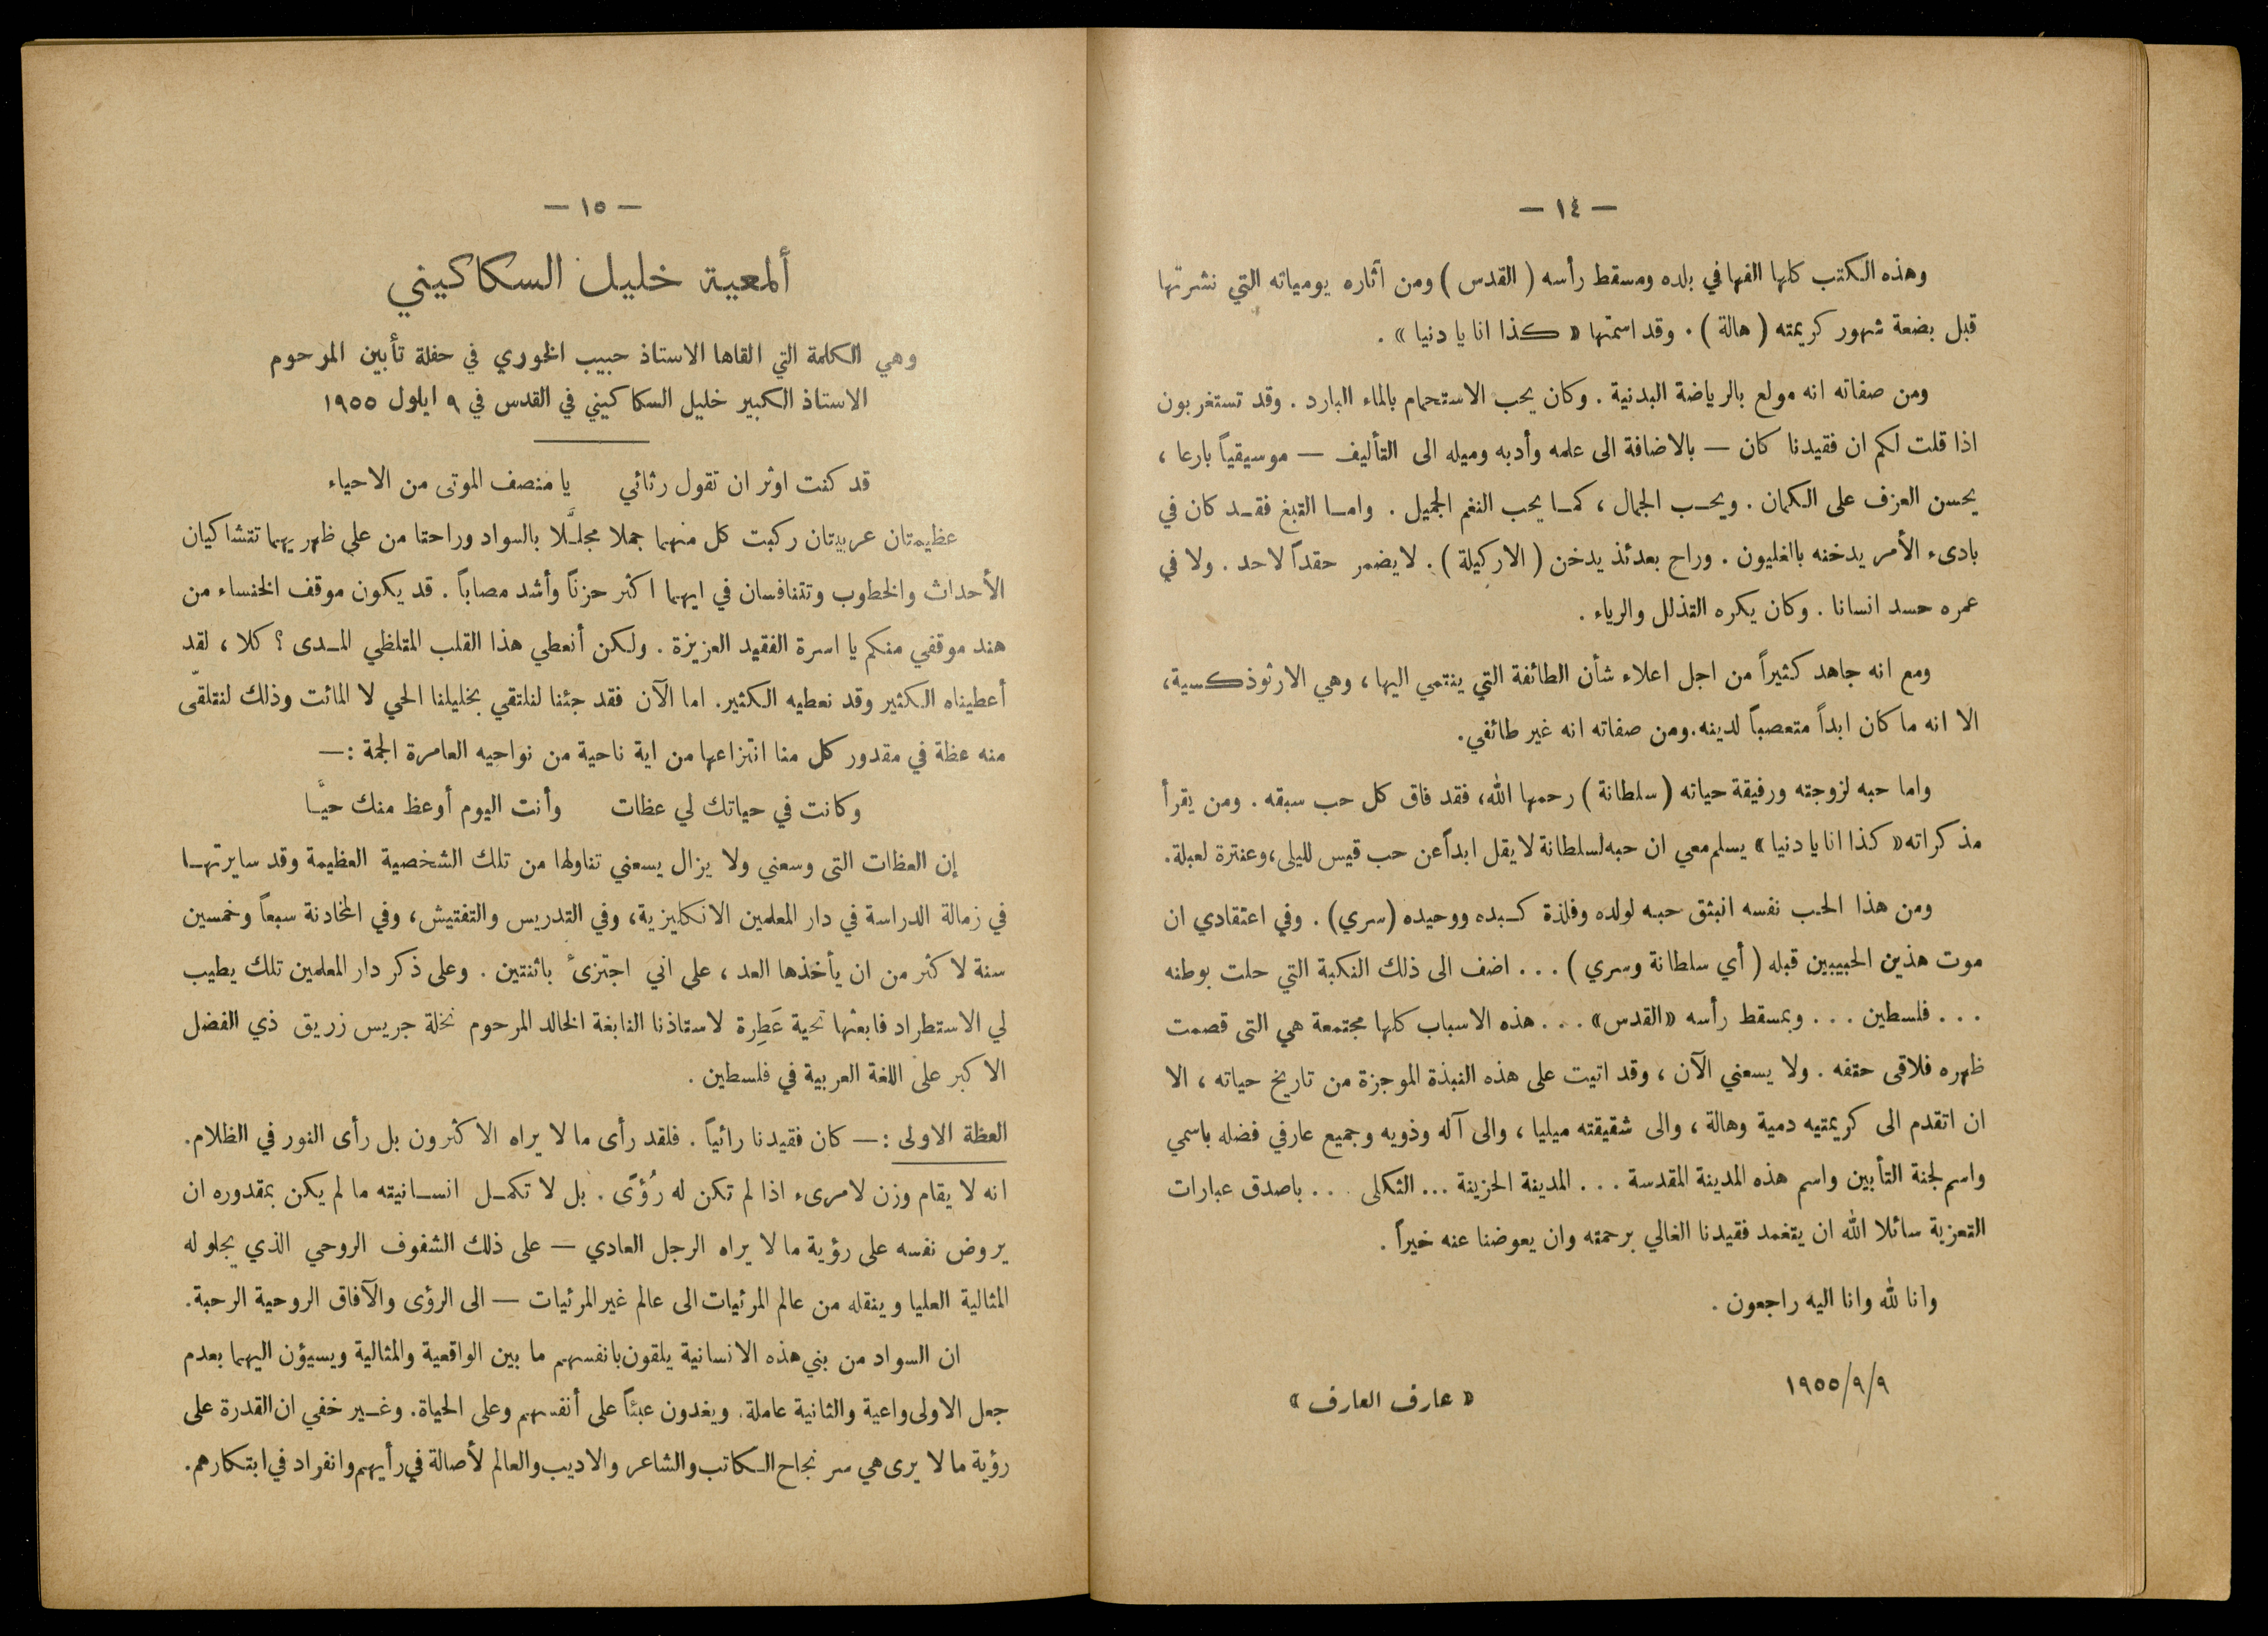 — ١٤ —
وهذه الكتب كلها الفها في بلده ومسقط رأسه ( القدس ) ومن آثاره يومياته التي نشرتها
قبل بضعة شهور كريمته ( هالة ) . وقد اسمتها « كذا انا يا دنيا » .
ومن صفاته انه مولع بالرياضة البدنية . وكان يحب الاستحمام بالماء البارد . وقد تستغربون
اذا قلت لكم ان فقيدنا كان — بالاضافة الى علمه وأدبه وميله الى التأليف — موسيقياً بارعا ،
يحسن العزف على الكمان . ويحب الجمال ، كما يحب النغم الجميل . واما التبغ فقد كان في
بادىء الأمر يدخنه بالغليون . وراح بعدئذ يدخن ( الاركيلة ) . لا يضمر حقداً لاحد . ولا في
عمره حسد انسانا . وكان يكره التذلل والرياء .
ومع انه جاهد كثيراً من اجل اعلاء شأن الطائفة التي ينتمي اليها ، وهي الارثوذكسية ،
الا انه ما كان ابداً متعصباً لدينه . ومن صفاته انه غير طائفي .
واما حبه لزوجته ورفيقة حياته ( سلطانة ) رحمها الله ، فقد فاق كل حب سبقه . ومن يقرأ
مذكراته « كذا انا يا دنيا » يسلم معي ان حبه لسلطانة لا يقل ابداً عن حب قيس لليلى ، وعنترة لعبلة .
ومن هذا الحب نفسه انبثق حبه لولده وفلذة كبده ووحيده ( سري ) . وفي اعتقادي ان
موت هذين الحبيبين قبله ( أي سلطانة وسري ) . . . اضف الى ذلك النكبة التي حلت بوطنه
. . . فلسطين . . . وبمسقط رأسه « القدس » . . . هذه الاسباب كلها مجتمعة هي التى قصمت
ظهره فلاقى حتفه . ولا يسعني الآن ، وقد اتيت على هذه النبذة الموجزة من تاريخ حياته ، الا
ان اتقدم الى كريمتيه دمية وهالة ، والى شقيقته ميليا ، والى آله وذويه وجميع عارفي فضله باسمي
واسم لجنة التأبين واسم هذه المدينة المقدسة . . . المدينة الحزينة ... الثكلى . . . باصدق عبارات
التعزية سائلا الله ان يتغمد فقيدنا الغالي برحمته وان يعوضنا عنه خيراً .
وانا لله وانا اليه راجعون .
١٩٥٥/٩/٩
« عارف العارف »
— ١٥ —
ألمعية خليل السكاكيني
وهي الكلمة التي القاها الاستاذ حبيب الخوري في حفلة تأبين المرحوم
الاستاذ الكبير خليل السكاكيني في القدس في ٩ ايلول ١٩٥٥
قد كنت اوثر ان تقول رثائي يا منصف الموتى من الاحياء
عظيمتان عربيتان ركبت كل منهما جملا مجلَّلا بالسواد وراحتا من على ظهريهما تتشاكيان
الأحداث والخطوب وتتنافسان في ايهما اكثر حزناً وأشد مصاباً . قد يكون موقف الخنساء من
هند موقفي منكم يا اسرة الفقيد العزيزة . ولكن أنعطي هذا القلب المتلظي المدى ؟ كلا ، لقد
أعطيناه الكثير وقد نعطيه الكثير . اما الآن فقد جئنا لنلتقي بخليلنا الحي لا المائت وذلك لنتلقّى
منه عظة في مقدور كل منا انتزاعها من اية ناحية من نواحيه العامرة الجمة : —
وكانت في حياتك لي عظات وأنت اليوم أوعظ منك حيَّا
إن العظات التى وسعني ولا يزال يسعني تناولها من تلك الشخصية العظيمة وقد سايرتها
في زمالة الدراسة في دار المعلمين الانكليزية ، وفي التدريس والتفتيش ، وفي المخادنة سبعاً وخمسين
سنة لاكثر من ان يأخذها العد ، على اني اجتزىءُ باثنتين . وعلى ذكر دار المعلمين تلك يطيب
لي الاستطراد فابعثها تحية عَطِرة لاستاذنا النابغة الخالد المرحوم نخلة جريس زريق ذي الفضل
الاكبر على اللغة العربية في فلسطين .
العظة الاولى : — كان فقيدنا رائياً . فلقد رأى ما لا يراه الاكثرون بل رأى النور في الظلام .
انه لا يقام وزن لامرىء اذا لم تكن له رُؤىً . بل لا تكمل انسانيته ما لم يكن بمقدوره ان
يروض نفسه على رؤية ما لا يراه الرجل العادي — على ذلك الشفوف الروحي الذي يجلو له
المثالية العليا وينقله من عالم المرئيات الى عالم غير المرئيات — الى الرؤى والآفاق الروحية الرحبة .
ان السواد من بني هذه الانسانية يلقون بانفسهم ما بين الواقعية والمثالية ويسيؤن اليهما بعدم
جعل الاولى واعية والثانية عاملة . ويغدون عبئاً على أنفسهم وعلى الحياة . وغير خفي ان القدرة على
رؤية ما لا يرى هي سر نجاح الكاتب والشاعر والاديب والعالم لأصالة في رأيهم وانفراد في ابتكارهم .